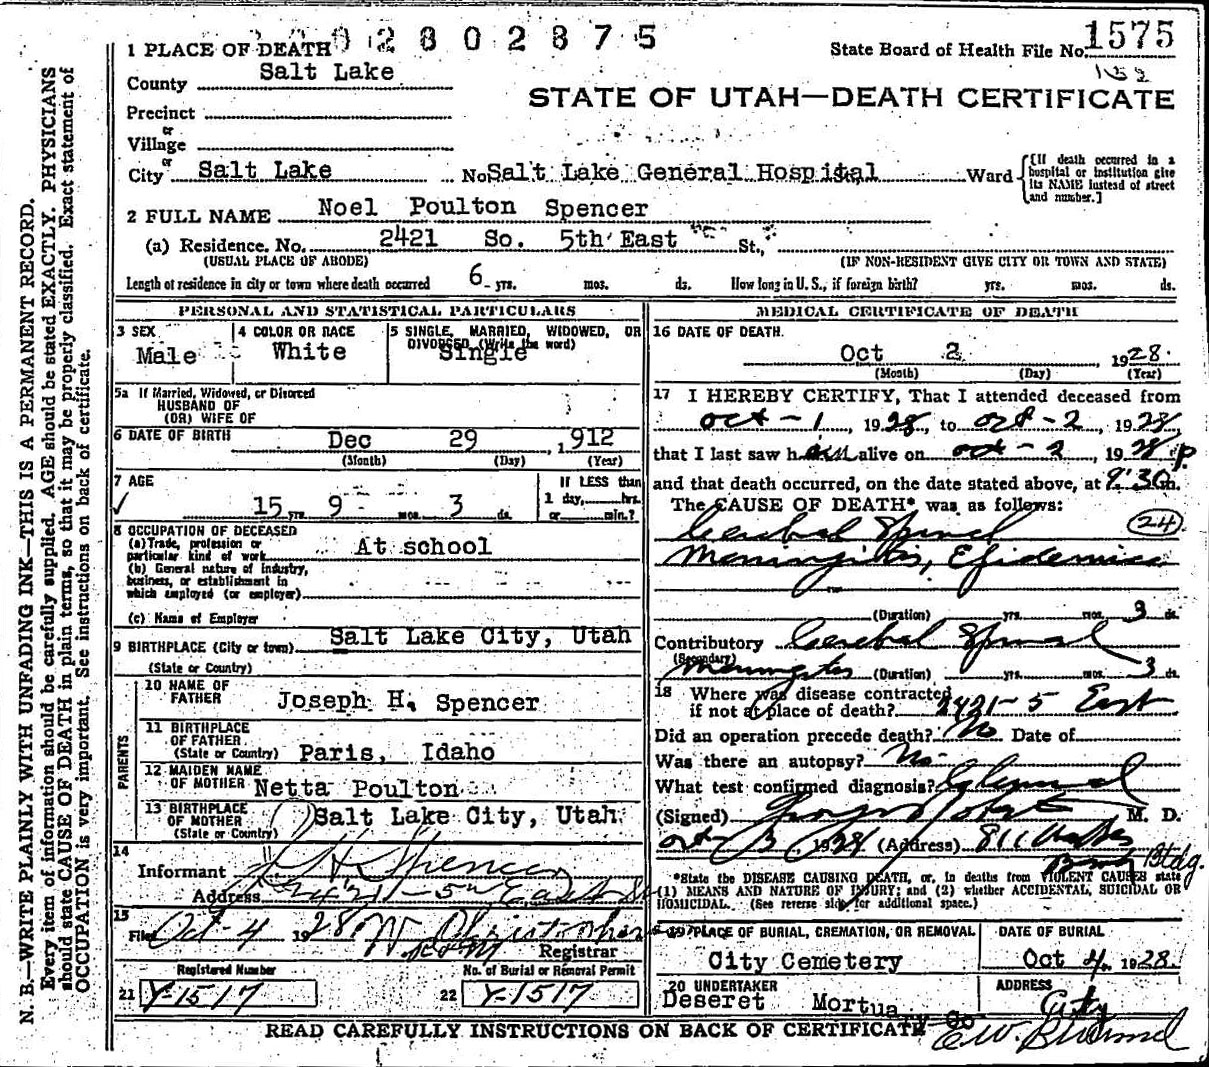 2802875
1 PLACE OF DEATH
State Board of Health File No. 1575
County Salt Lake
STATE OF UTAH—DEATH CERTIFICATE
Precinct
or
Village
or
City Salt Lake No. Salt Lake General Hospital Ward {[If death occurred in a hospital or institution give its NAME instead of street and number.]
2 FULL NAME Noel Poulton Spencer
(a) Residence. No. 2421 So. 5th East St.,
(USUAL PLACE OF ABODE) (IF NON-RESIDENT GIVE CITY OR TOWN AND STATE)
Length of residence in city or town where death occurred 6 yrs. mos. ds. How long in U. S., if foreign birth? yrs. mos. ds.
PERSONAL AND STATISTICAL PARTICULARS
3 SEX
Male
4 COLOR OR RACE
White
5 SINGLE, MARRIED, WIDOWED, OR
DIVORCED (Write the word)
Single
5a If Married, Widowed, or Divorced
HUSBAND OF
(OR) WIFE OF
6 DATE OF BIRTH Dec 29, 1912
(Month) (Day) (Year)
7 AGE
15 yrs. 9 mos. 3 ds.
IF LESS than
1 day, hrs.
or min.?
8 OCCUPATION OF DECEASED
(a) Trade, profession or
particular kind of work At school
(b) General nature of industry,
business, or establishment in
which employed (or employer)
(c) Name of Employer
9 BIRTHPLACE (City or town) Salt Lake City, Utah
(State or Country)
PARENTS
10 NAME OF
FATHER Joseph H. Spencer
11 BIRTHPLACE
OF FATHER
(State or Country) Paris, Idaho
12 MAIDEN NAME
OF MOTHER Netta Poulton
13 BIRTHPLACE
OF MOTHER Salt Lake City, Utah
(State or Country)
14
Informant J H Spencer
Address 2421 - 5th East St
15
Filed Oct - 4 1928
Registrar
Registered Number
21 Y-1517
No. of Burial or Removal Permit
22 Y-1517
MEDICAL CERTIFICATE OF DEATH
16 DATE OF DEATH.
Oct 2 1928.
(Month) (Day) (Year)
17 I HEREBY CERTIFY, That I attended deceased from
oct - 1, 1928, to oct - 2, 1928,
that I last saw him alive on oct - 2, 1928
and that death occurred, on the date stated above, at 9:30 P.m.
The CAUSE OF DEATH* was as follows:
Cerebral Spinal (24)
Meningitis, Epidemica
(Duration) yrs. mos. 3 ds.
Contributory Cerebral Spinal
(Secondary)
Meningitis (Duration) yrs. mos. 3 ds.
18 Where was disease contracted
if not at place of death? 2421 - 5 East
Did an operation precede death? No Date of
Was there an autopsy? No
What test confirmed diagnosis?
(Signed) M. D.
oct - 3, 1928 (Address) 811 Bldg.
*State the DISEASE CAUSING DEATH, or, in deaths from VIOLENT CAUSES state
(1) MEANS AND NATURE OF INJURY; and (2) whether ACCIDENTAL, SUICIDAL OR
HOMICIDAL. (See reverse side for additional space.)
19 PLACE OF BURIAL, CREMATION, OR REMOVAL
City Cemetery
DATE OF BURIAL
Oct 4, 1928.
20 UNDERTAKER
Deseret Mortuary Co
ADDRESS
City
READ CAREFULLY INSTRUCTIONS ON BACK OF CERTIFICATE
N. B.—WRITE PLAINLY WITH UNFADING INK—THIS IS A PERMANENT RECORD.
Every item of information should be carefully supplied. AGE should be stated EXACTLY. PHYSICIANS
should state CAUSE OF DEATH in plain terms, so that it may be properly classified. Exact statement of
OCCUPATION is very important. See instructions on back of certificate.